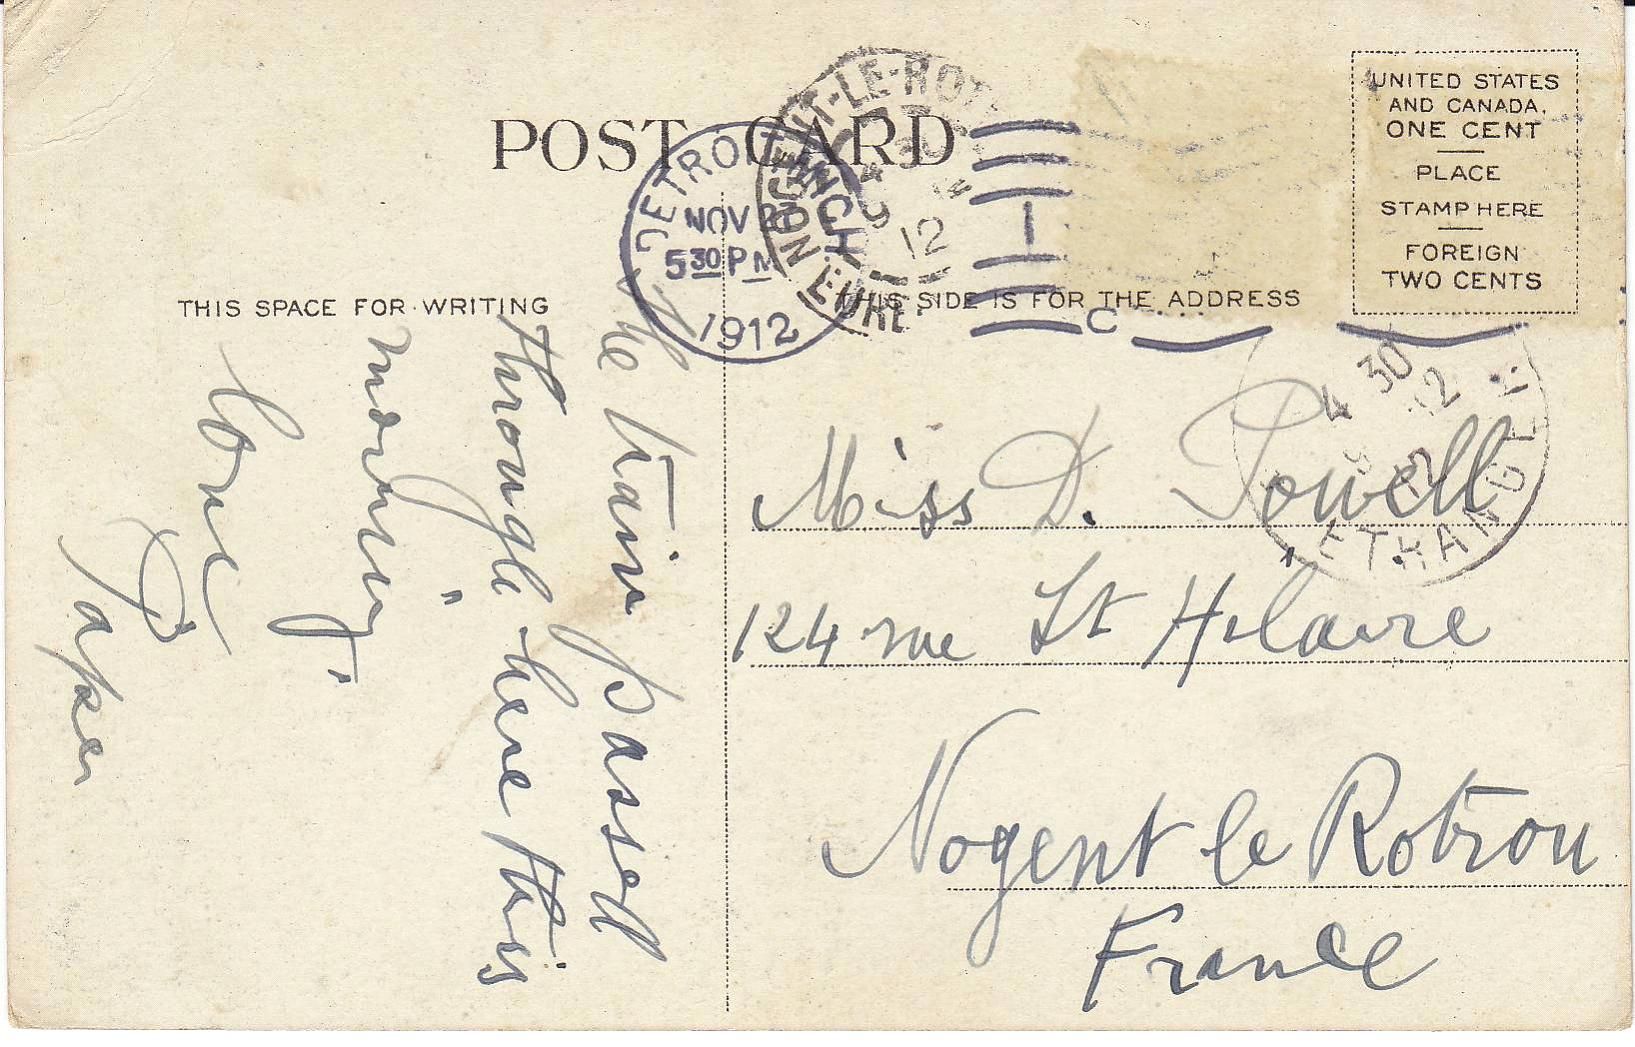 POST CARD
THIS SPACE FOR WRITING
THIS SIDE IS FOR THE ADDRESS
UNITED STATES
AND CANADA,
ONE CENT
PLACE
STAMP HERE
FOREIGN
TWO CENTS
DETROIT
NOV 27
5 30 PM
1912
NOGENT-LE-ROT
EURE
12
C
The train passed
through here this
morning.
Love
Papa
Miss D. Powell
124 rue St Hilaire
Nogent le Rotrou
France
4 30
12
12
ETRANGER